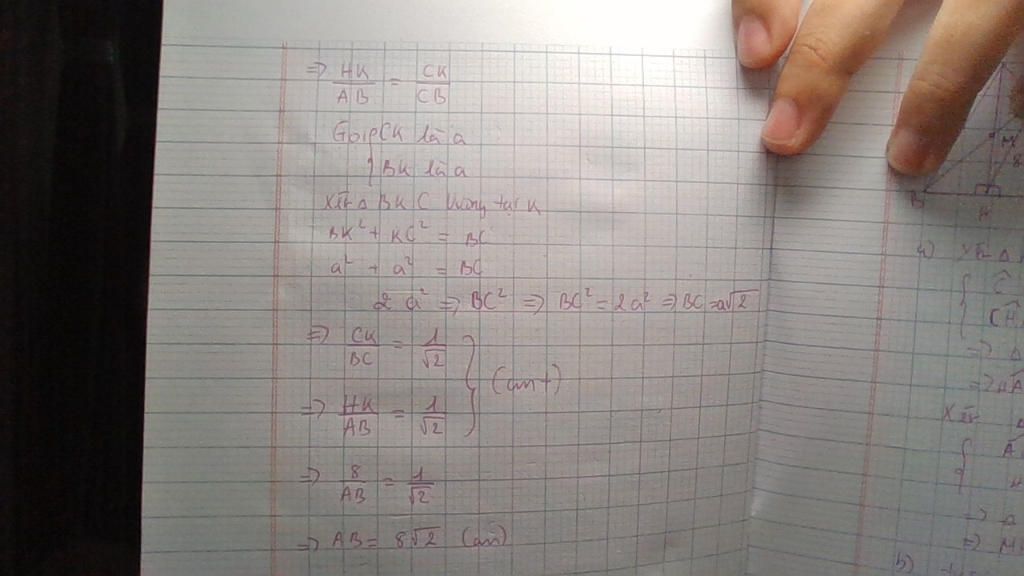 => HK/AB = CK/CB
Gọi { CK là a
BK là a
Xét Δ BKC vuông tại K
BK² + KC² = BC
a² + a² = BC
2a² => BC² => BC² = 2a² => BC = a√2
=> CK/BC = 1/√2
=> HK/AB = 1/√2 } (cmt)
=> 8/AB = 1/√2
=> AB = 8√2 (cm)
B
H
M
8
a) Xét Δ
{ Ĉ
=> Δ
Xét Δ
=> Δ
b)